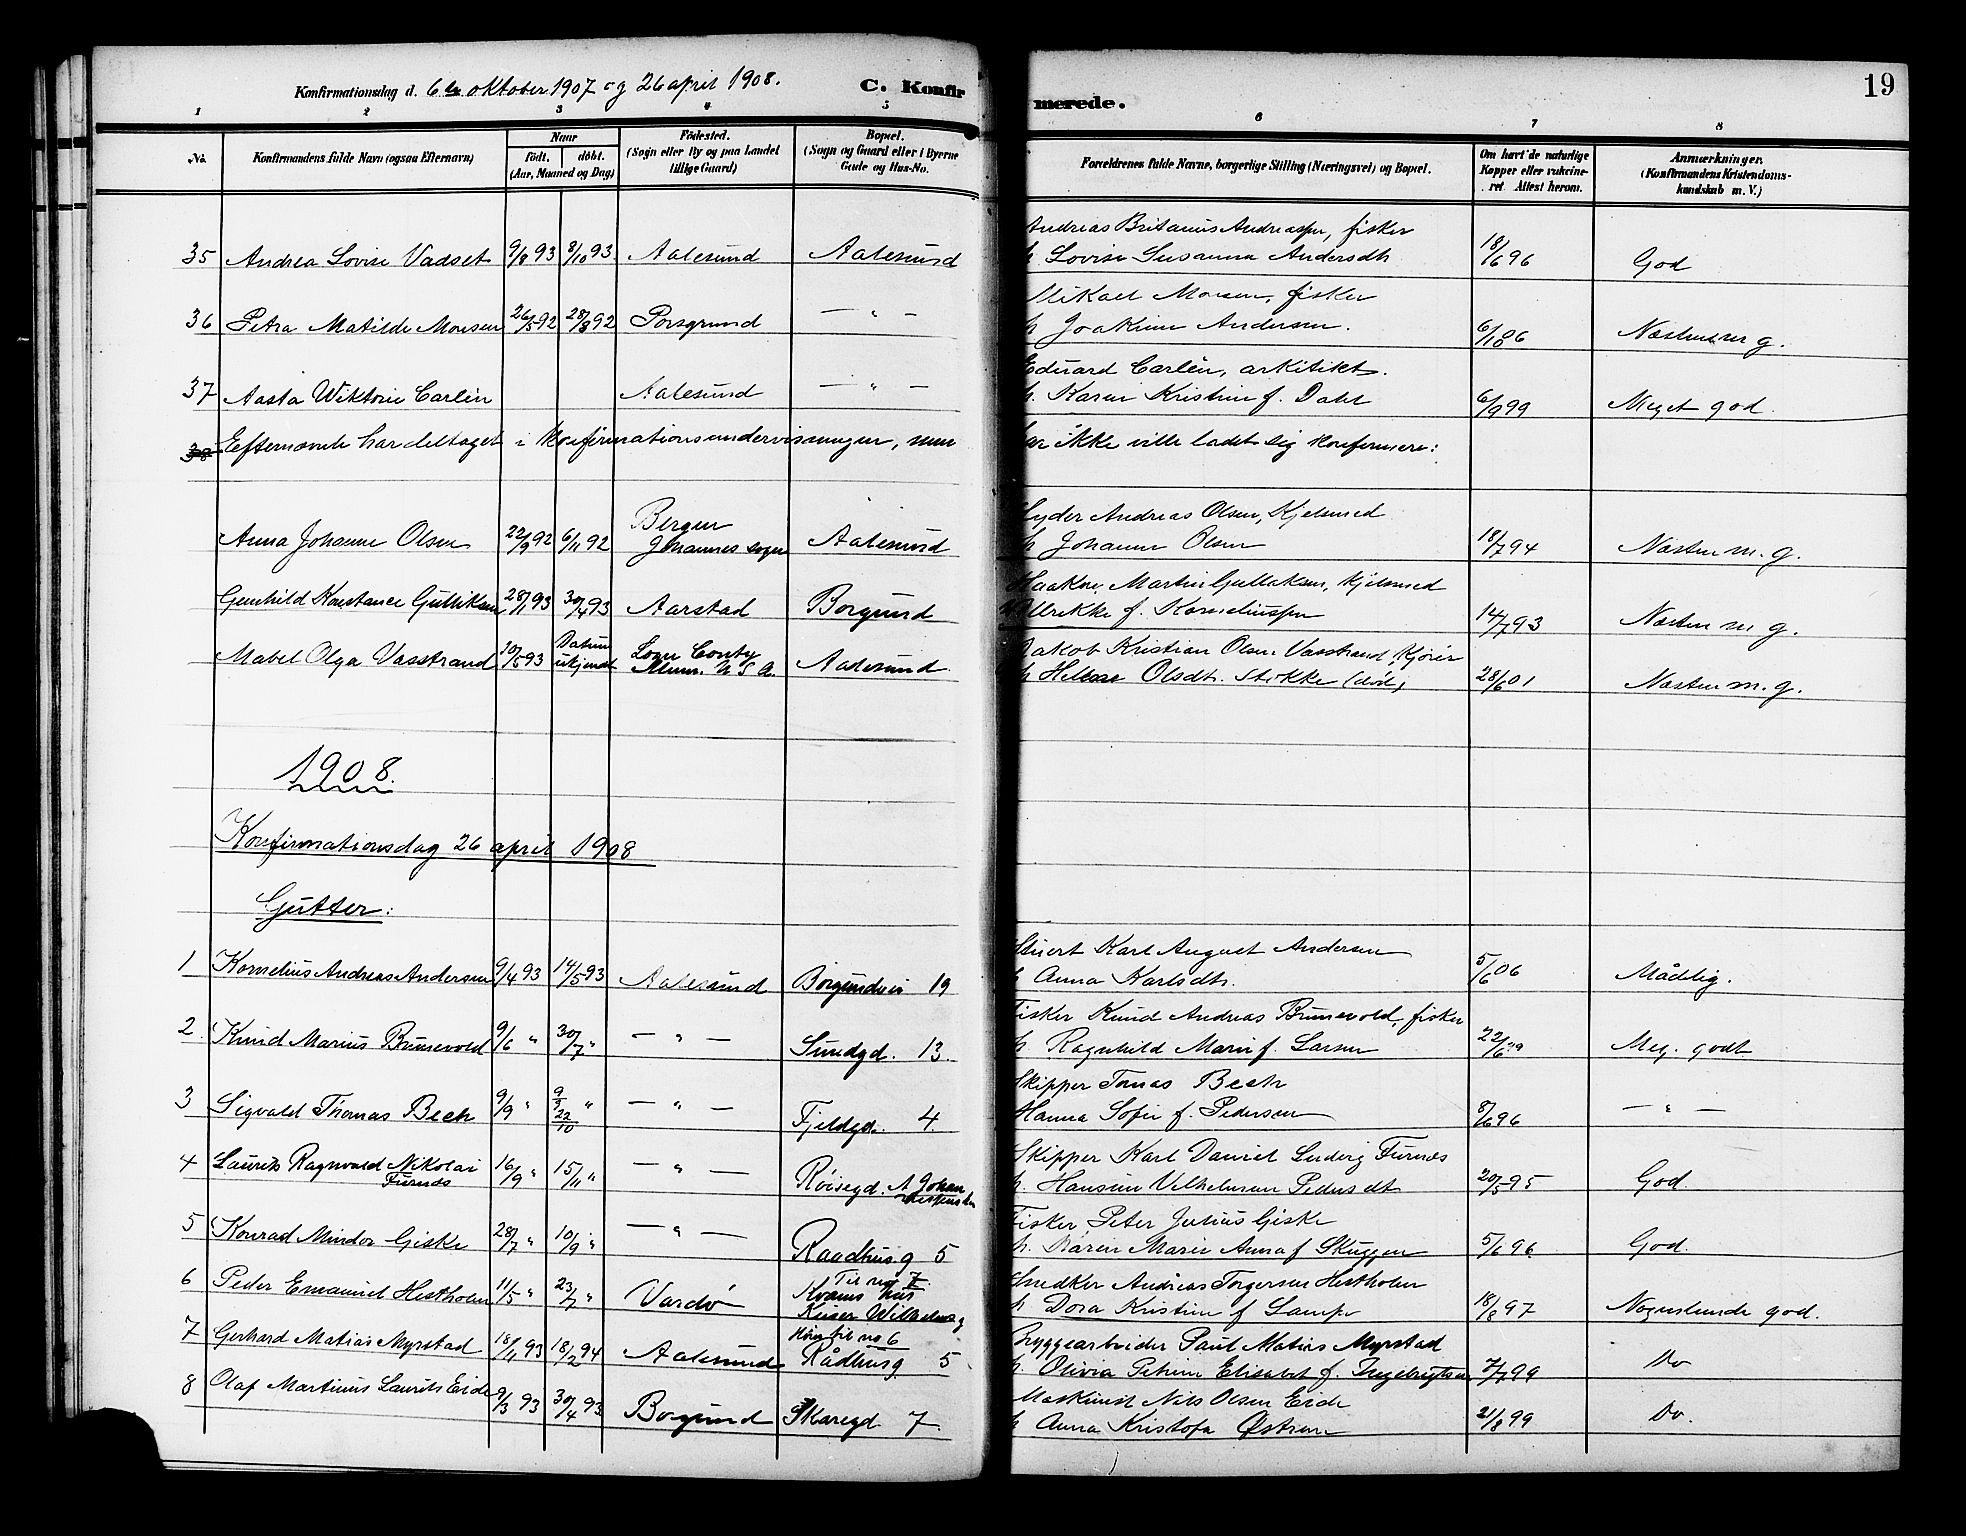 Konfirmationsdag d. 6te oktober 1907 og 26 april 1908. C. Konfirmerede. 19
1 2 3 4 5 6 7 8
No. Konfirmandens fulde Navn (ogsaa Efternavn) Naar født. døbt. (Aar, Maaned og Dag) Fødested. (Sogn eller By og paa Landet tillige Gaard) Bopæl. (Sogn og Gaard eller i Byerne Gade og Hus-No. Forældrenes fulde Navne, borgerlige Stilling (Næringsvei) og Bopæl. Om havt de naturlige Kopper eller vakcineret. Attest herom. Anmærkninger. (Konfirmandens Kristendomskundskab m. V.)
Andreas Britanus Andreassen, fisker
35 Andrea Lovise Vadset 9/8 93 8/10 93 Aalesund Aalesund h. Lovise Susanna Andersdtr 18/6 96 God
Mikael Monsen, fisker
36 Petra Matilde Monsen 26/5 92 28/8 92 Porsgrund — " — h Joakime Andersen. 6/10 06 Næsten m g.
Eduard Carlèn, arkitekt.
37 Aasta Wiktorie Carlèn Aalesund — " — h. Karen Kristine f. Dahl 6/9 99 Meget god.
38 Efternævnte har deltaget i konfirmationsundervisningen, men har ikke ville ladet sig konfirmere:
Lyder Andreas Olsen, Kjelsmed
Anna Johanne Olsen 22/9 92 6/11 92 Bergen Johannes sogn Aalesund h Johanne Olsen 18/7 94 Næsten m. g.
Haakon Martin Gulliksen, Kjelsmed
Gunhild Konstance Gulliksen 28/1 93 30/4 93 Aarstad Borgund h Ulrikke f. Korneliussen 14/7 93 Næsten m g.
Jakob Kristian Olsen Vasstrand, Kjører
Mabel Olga Vasstrand 30/5 93 Datum ukjendt Minn. U S A. Aalesund h Helene Olsdt. Stokke (død) 28/6 01 Næsten m. g.
1908.
Konfirmationsdag 26 april 1908
Gutter:
Stuert Karl August Andersen
1 Kornelius Andreas Andersen 9/4 93 14/5 93 Aalesund Borgundvei 19 h Anna Karlsdtr. 5/6 06 Mådelig.
Fisker Knud Andreas Brunevold, fisker
2. Knud Marius Brunevold 9/6 " 30/7 " — " — Sundgd. 13 h Ragnhild Marie f. Larsen 22/6 99 Meg. godt
Skipper Tomas Bech
3 Sigvald Thomas Bech 9/9 " 9/9 22/10 " — " — Fjeldgd. 4. Hanna Sofie f. Pedersen 8/6 96 — " —
Skipper Karl Daniel Ludvig Furnæs
4 Laurits Ragnvald Nikolai Furnæs 16/9 " 15/11 " — " — Røisegd. h. Hansine Vilhelmine Pedersdt 20/5 95 God.
Fisker Peter Julius Giske
5 Konrad Mindor Giske 28/7 " 10/9 " — " — Raadhusg 5 h. Karen Marie Anna f Skuggen 5/6 96 God.
Til no 7
Snedker Andreas Torgersen Hestholm
6 Peder Emanuel Hestholm 11/5 " 23/7 " Vardø Kvams hus Keiser Wilhelmsg h Dora Kristine f Lampe 18/8 97 Nogenlunde god.
Hører til no 6
Bryggearbeider Paul Matias Myrstad
7 Gerhard Matias Myrstad 18/11 93 18/2 94 Aalesund Rådhusg 5 h. Olivia Petrine Elisabet f. Ingebrigtsen 7/7 99 Do
Maskinist Nils Olsen Eide
8 Olaf Martinus Laurits Eide 9/3 93 30/4 93 Borgund Skaregd 7. h Anna Kristofa Østrem 21/8 99 Do.